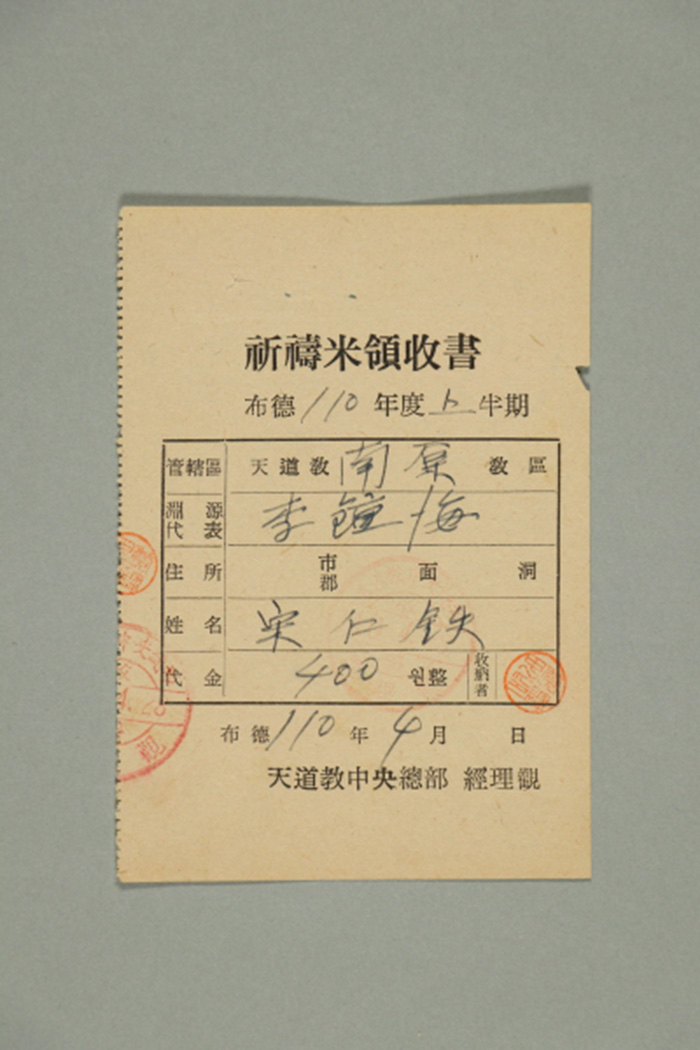 祈禱米領收書
布德 110 年度 上 半期
管轄區 天道教 南原 教區
淵源代表 李鍾海
住所 市郡 面 洞
姓名 宋仁鉄
代金 400 원整 收納者
布德 110 年 4 月 日
天道教中央總部 經理觀